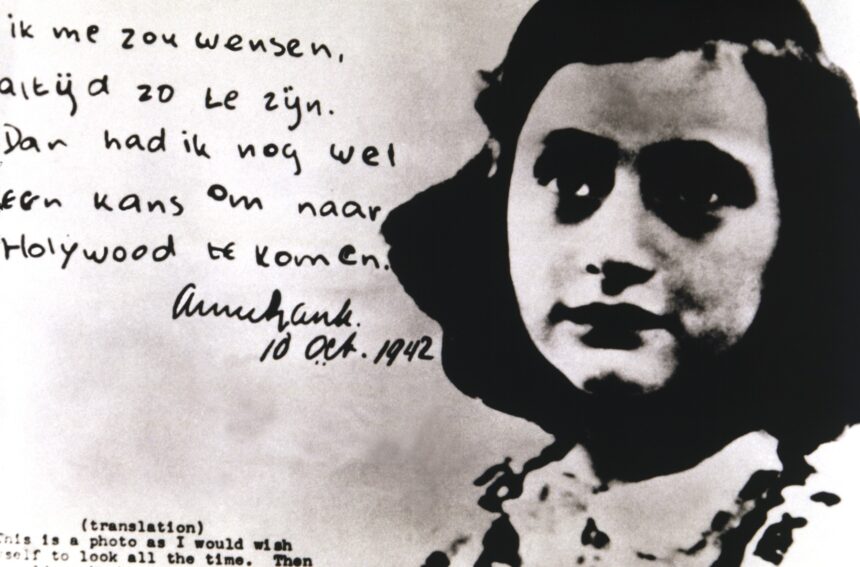 ik me zou wensen,
altijd zo te zijn.
Dan had ik nog wel
een kans om naar
Holywood te komen.
AnneFrank.
10 Oct. 1942
(translation)
This is a photo as I would wish
self to look all the time. Then